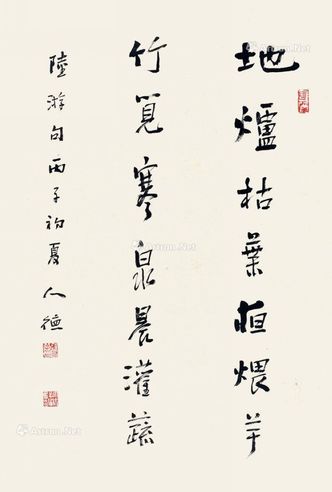 地爐枯葉夜煨芋
竹筧寒泉晨灌蔬
陸游句丙子初夏人德